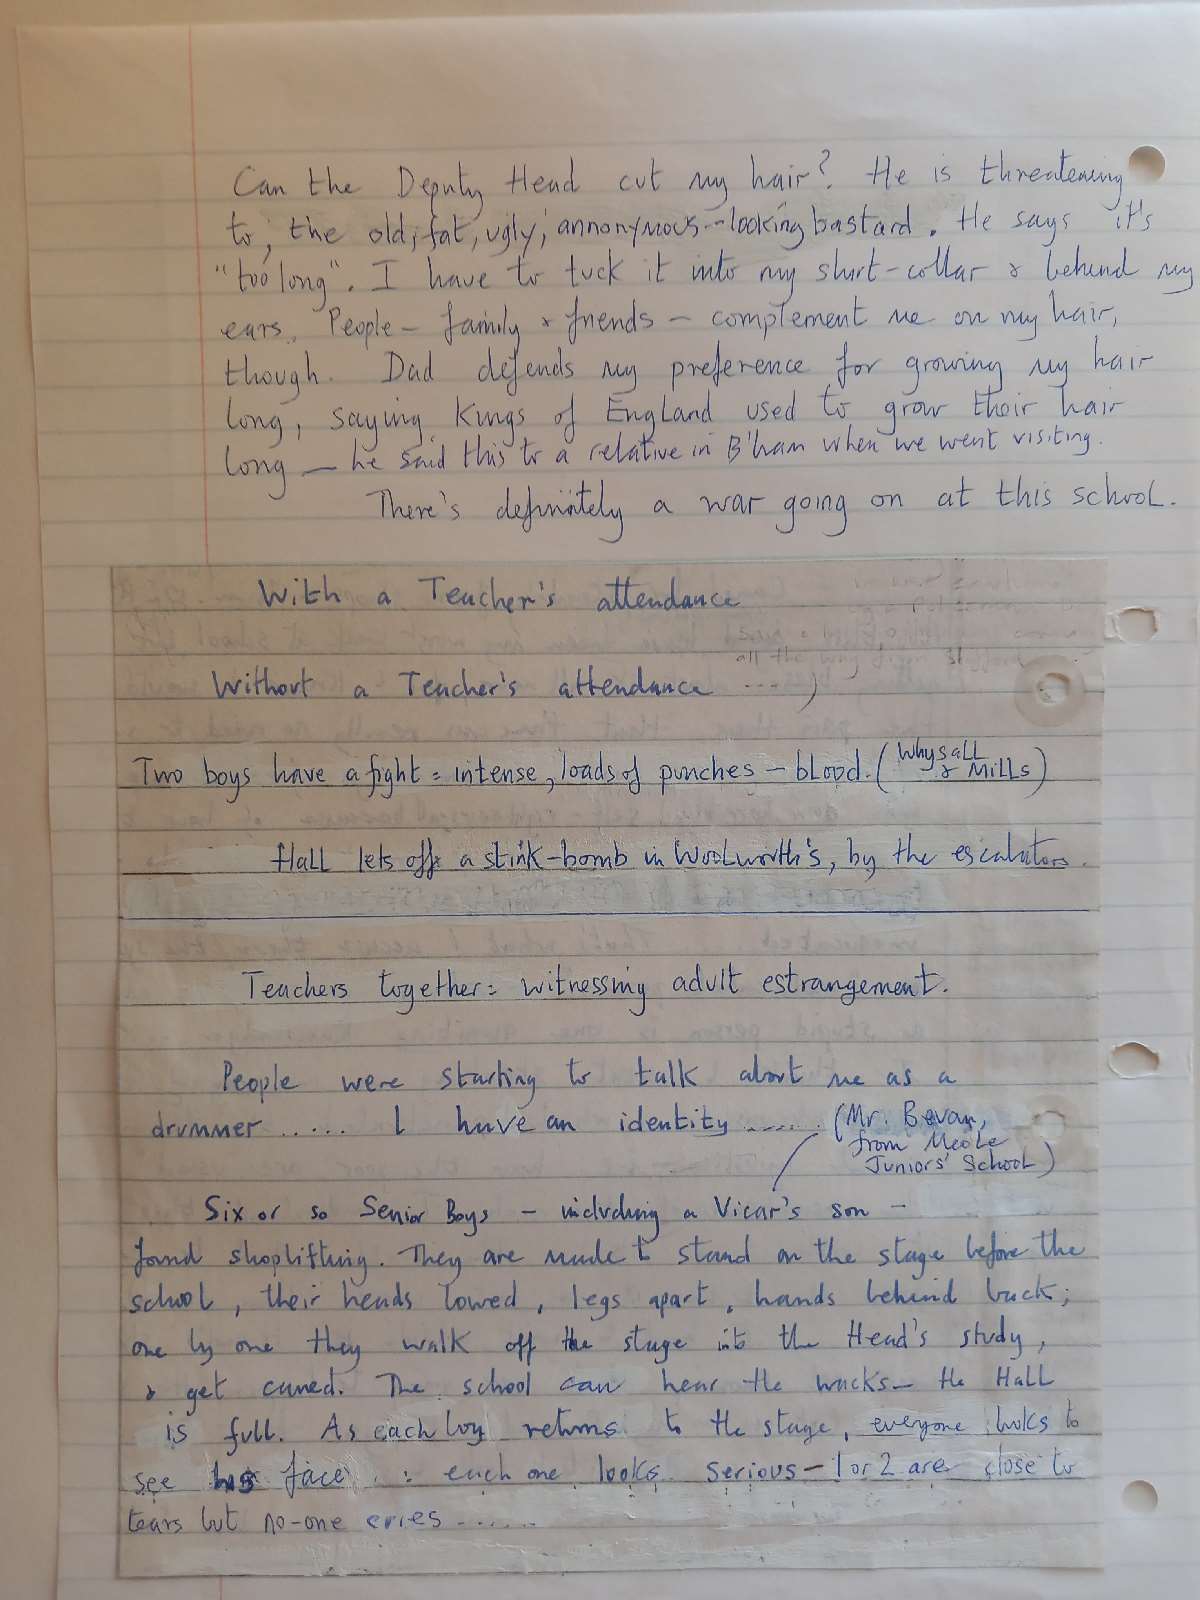 Can the Deputy Head cut my hair? He is threatening
to, the old, fat, ugly, annonymous-looking bastard. He says it's
"too long". I have to tuck it into my shirt-collar & behind my
ears. People - family & friends - complement me on my hair,
though. Dad defends my preference for growing my hair
long, saying Kings of England used to grow their hair
long - he said this to a relative in B'ham when we went visiting.
There's definitely a war going on at this school.
With a Teacher's attendance
Without a Teacher's attendance ....)
Two boys have a fight = intense, loads of punches - blood. (Whysall
& Mills)
Hall lets off a stink-bomb in Woolworth's, by the escalators.
Teachers together = witnessing adult estrangement.
People were starting to talk about me as a
drummer ..... I have an identity ...... (Mr. Bevan,
from Meole
Juniors' School)
Six or so Senior Boys - including a Vicar's son -
found shoplifting. They are made to stand on the stage before the
school, their heads lowed, legs apart, hands behind back;
one by one they walk off the stage into the Head's study,
& get caned. The school can hear the wacks - the Hall
is full. As each boy returns to the stage, everyone looks to
see his face : each one looks serious - 1 or 2 are close to
tears but no-one cries ......